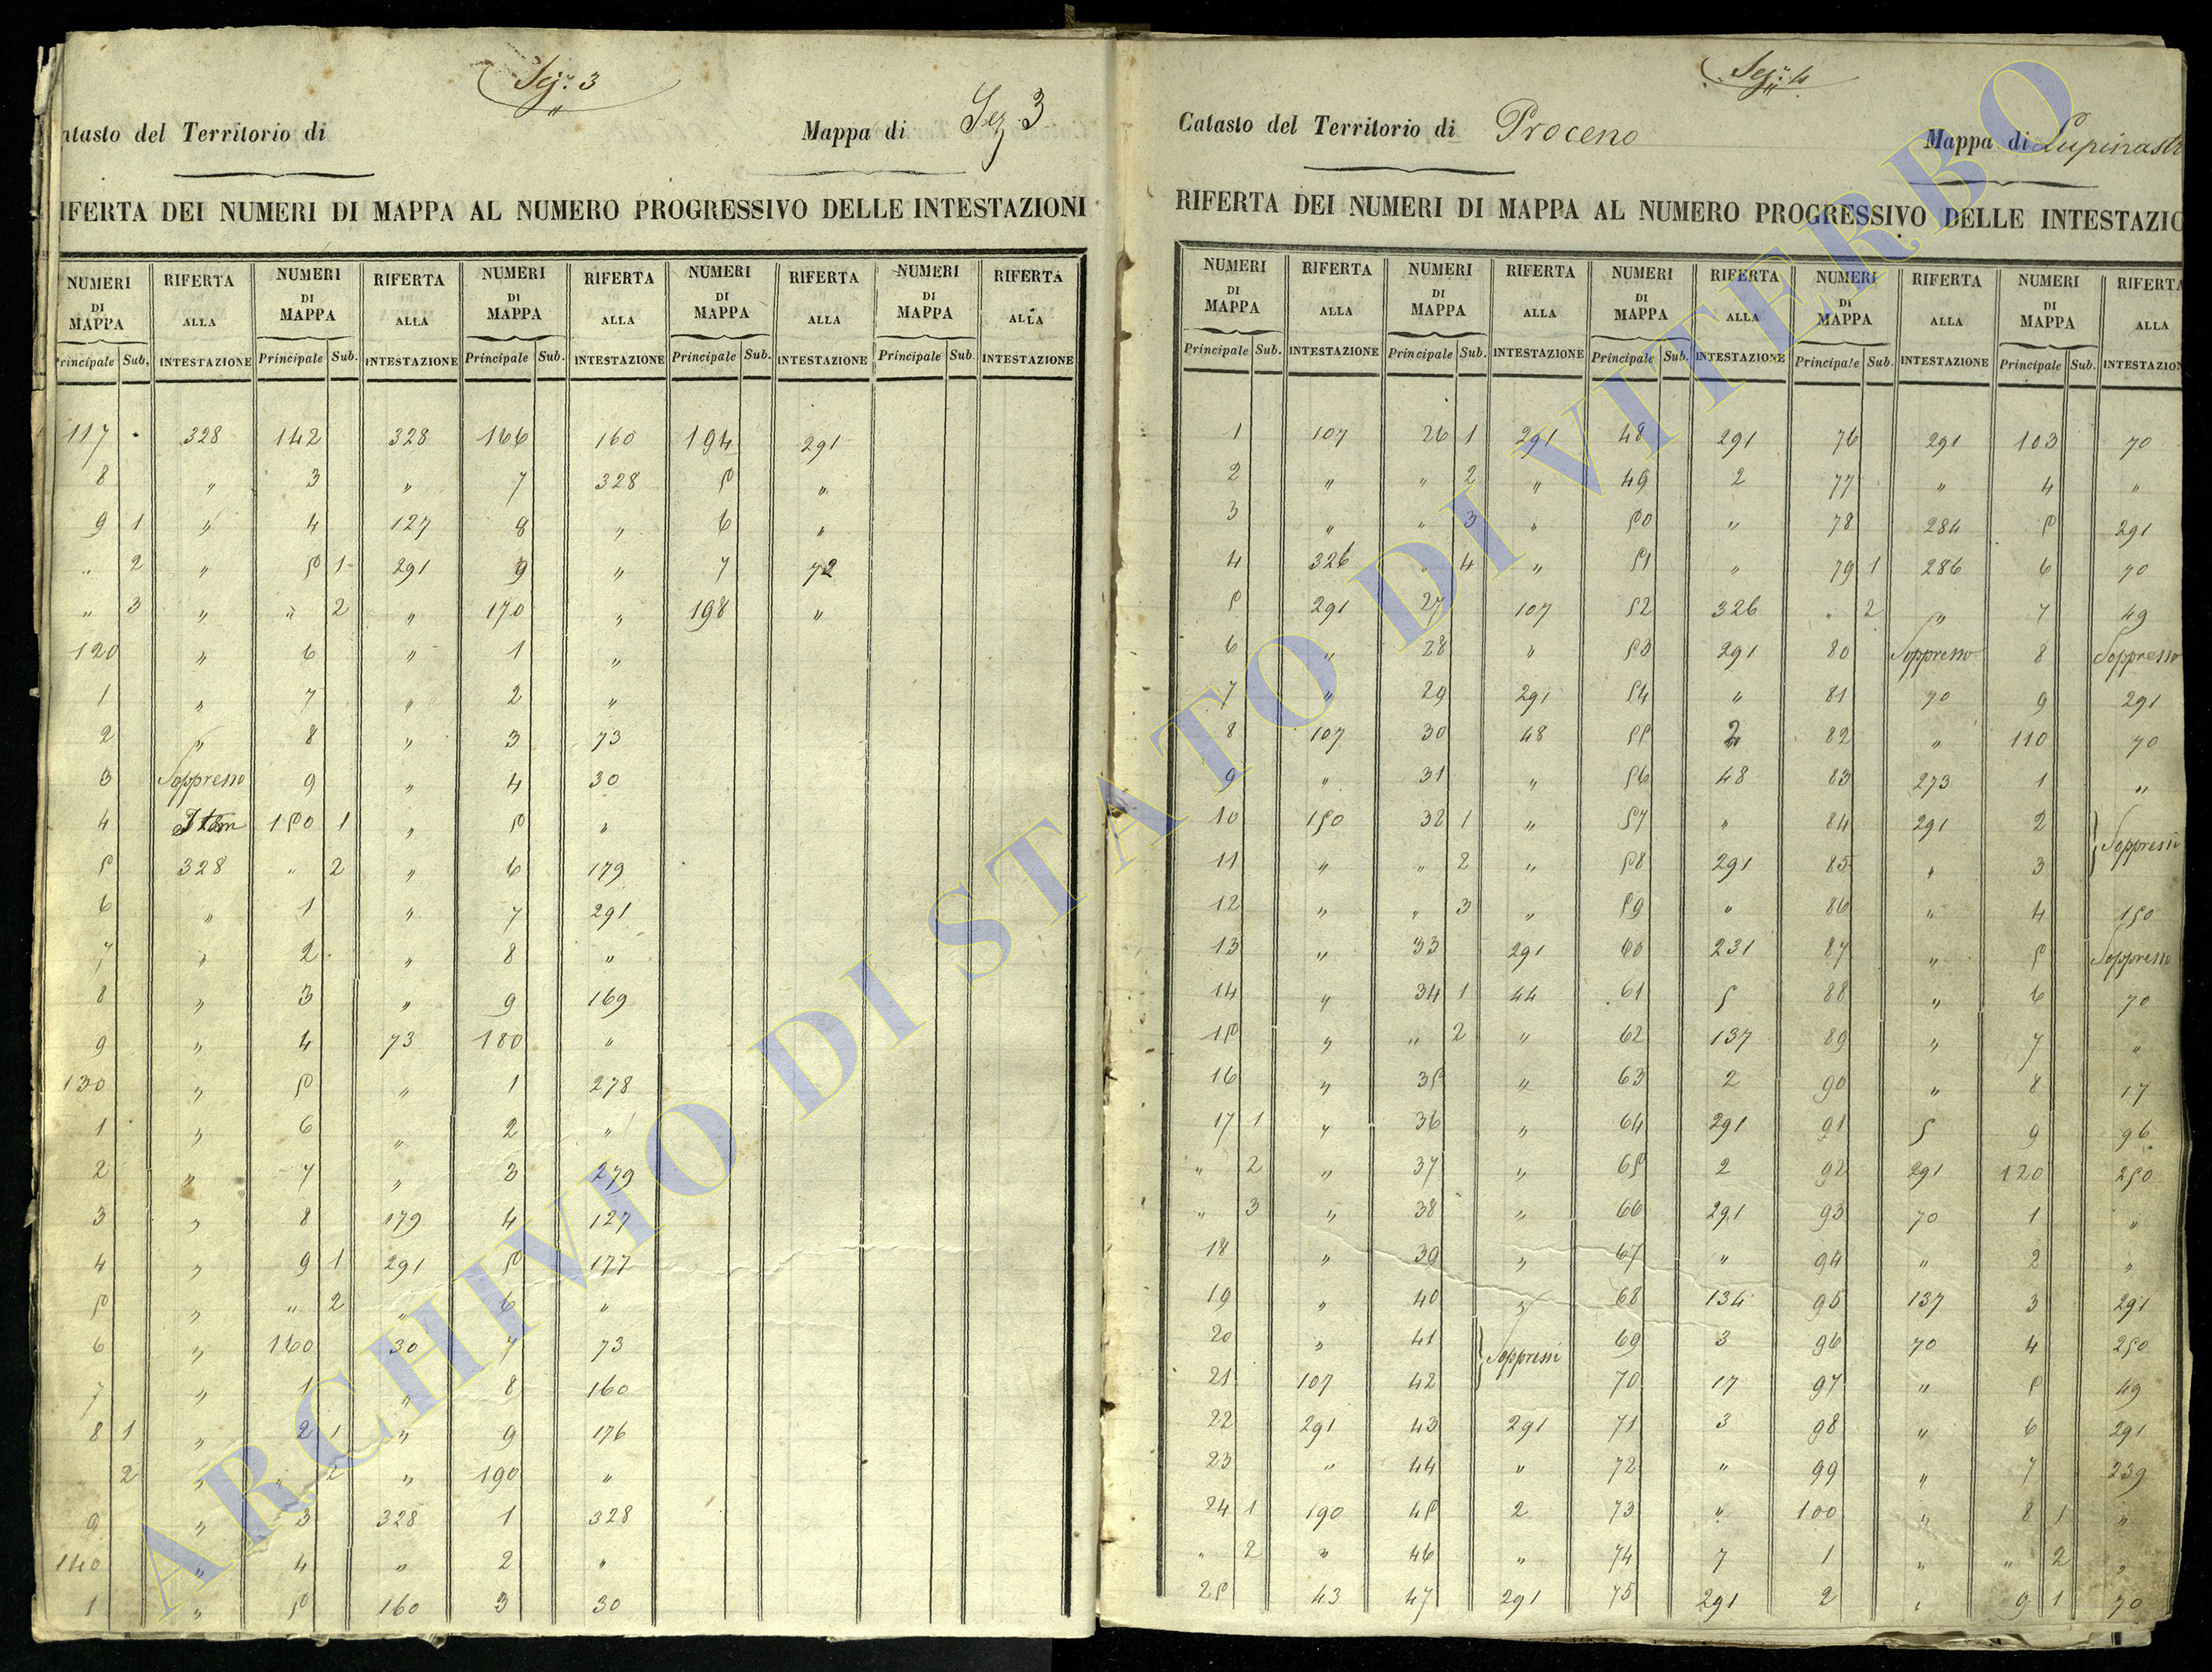 Sez. 3
Catasto del Territorio di
Mappa di Sez. 3
RIFERTA DEI NUMERI DI MAPPA AL NUMERO PROGRESSIVO DELLE INTESTAZIONI
NUMERI DI MAPPA RIFERTA ALLA NUMERI DI MAPPA RIFERTA ALLA NUMERI DI MAPPA RIFERTA ALLA NUMERI DI MAPPA RIFERTA ALLA NUMERI DI MAPPA RIFERTA ALLA
Principale Sub. INTESTAZIONE Principale Sub. INTESTAZIONE Principale Sub. INTESTAZIONE Principale Sub. INTESTAZIONE Principale Sub. INTESTAZIONE
117 328 142 328 166 160 194 291
8 " 3 " 7 328 5 "
9 1 " 4 127 8 " 6 "
" 2 " 5 1 291 9 " 7 72
" 3 " " 2 " 170 " 198 "
120 " 6 " 1 "
1 " 7 " 2 "
2 " 8 " 3 73
3 Soppresso 9 " 4 30
4 Item 150 1 " 5 "
5 328 " 2 " 6 179
6 " 1 " 7 291
7 " 2 " 8 "
8 " 3 " 9 169
9 " 4 73 180 "
130 " 5 " 1 278
1 " 6 " 2 "
2 " 7 " 3 279
3 " 8 179 4 127
4 " 9 1 291 5 177
5 " " 2 " 6 "
6 " 160 30 7 73
7 " 1 " 8 160
8 1 " 2 1 " 9 176
2 " " 2 " 190 "
9 " 3 328 1 328
140 " 4 " 2 "
1 " 5 160 3 30
Sez. 4
Catasto del Territorio di Proceno
Mappa di Lupinast
RIFERTA DEI NUMERI DI MAPPA AL NUMERO PROGRESSIVO DELLE INTESTAZIO
NUMERI DI MAPPA RIFERTA ALLA NUMERI DI MAPPA RIFERTA ALLA NUMERI DI MAPPA RIFERTA ALLA NUMERI DI MAPPA RIFERTA ALLA NUMERI DI MAPPA RIFERTA ALLA
Principale Sub. INTESTAZIONE Principale Sub. INTESTAZIONE Principale Sub. INTESTAZIONE Principale Sub. INTESTAZIONE Principale Sub. INTESTAZION
1 107 26 1 291 48 291 76 291 103 70
2 " " 2 " 49 2 77 " 4 "
3 " " 3 " 50 " 78 284 5 291
4 326 " 4 " 51 " 79 1 286 6 70
5 291 27 107 52 326 " 2 " 7 49
6 " 28 " 53 291 80 Soppresso 8 Soppresso
7 " 29 291 54 " 81 70 9 291
8 107 30 48 55 2 82 " 110 70
9 " 31 " 56 48 83 273 1 "
10 150 32 1 " 57 " 84 291 2 Soppressi
11 " " 2 " 58 291 85 " 3
12 " " 3 " 59 " 86 " 4 150
13 " 33 291 60 231 87 " 5 Soppresso
14 " 34 1 44 61 5 88 " 6 70
15 " " 2 " 62 137 89 " 7 "
16 " 35 " 63 2 90 " 8 17
17 1 " 36 " 64 291 91 5 9 96
" 2 " 37 " 65 2 92 291 120 250
" 3 " 38 " 66 291 93 70 1 "
18 " 39 " 67 " 94 " 2 "
19 " 40 " 68 134 95 137 3 291
20 " 41 Soppressi 69 3 96 70 4 250
21 107 42 70 17 97 " 5 49
22 291 43 291 71 3 98 " 6 291
23 " 44 " 72 " 99 " 7 239
24 1 190 45 2 73 " 100 " 8 1 "
" 2 " 46 " 74 7 1 " " 2 "
25 43 47 291 75 291 2 " 9 1 70
ARCHIVIO DI STATO DI VITERBO